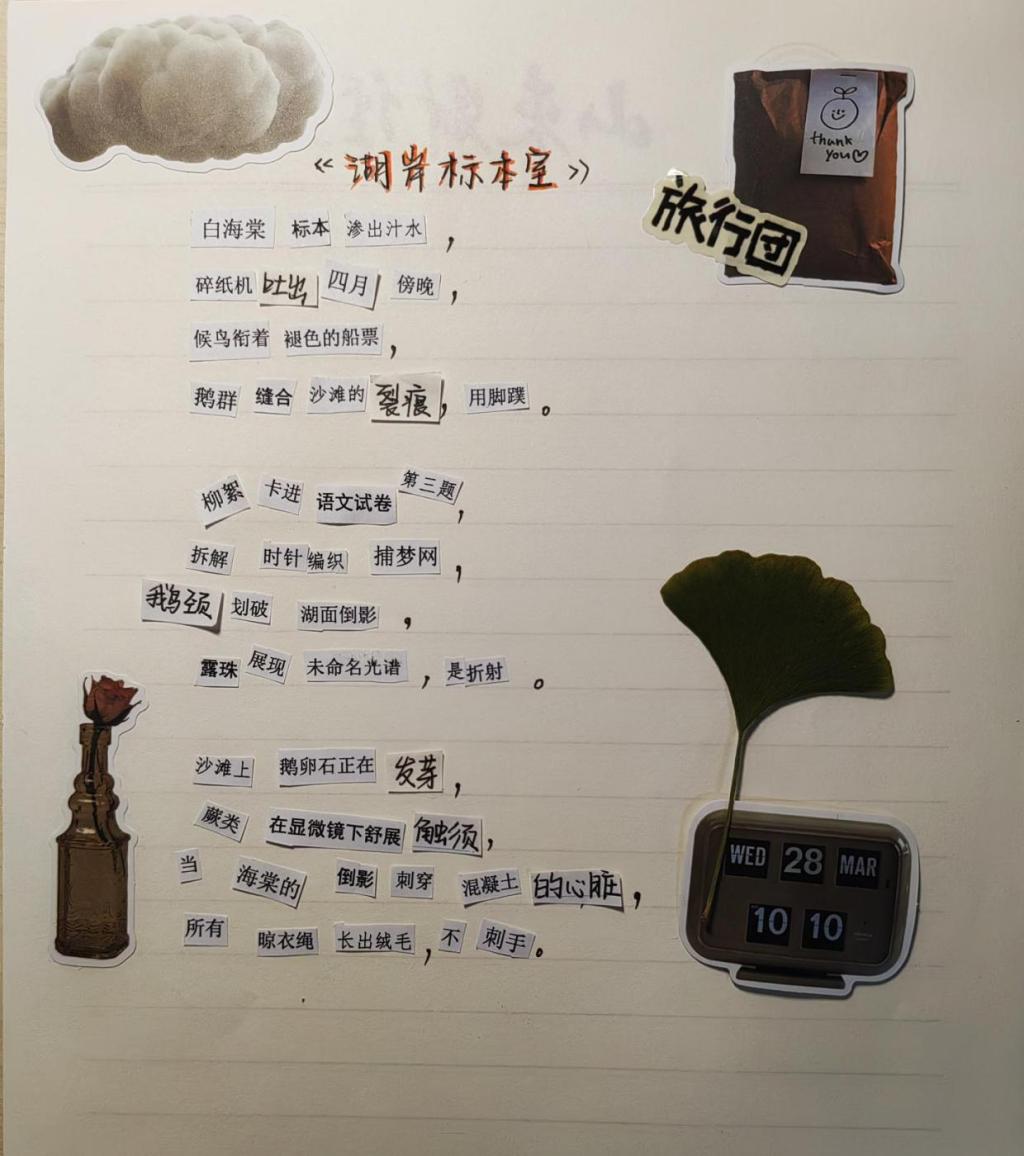 《湖岸标本室》
thank
you
旅行团
白海棠 标本 渗出汁水，
碎纸机 吐出 四月 傍晚，
候鸟衔着 褪色的船票，
鹅群 缝合 沙滩的 裂痕，用脚蹼。
柳絮 卡进 语文试卷 第三题，
拆解 时针 编织 捕梦网，
鹅颈 划破 湖面倒影，
露珠 展现 未命名光谱，是折射。
沙滩上 鹅卵石正在 发芽，
蕨类 在显微镜下舒展 触须，
当 海棠的 倒影 刺穿 混凝土 的心脏，
所有 晾衣绳 长出绒毛，不 刺手。
WED 28 MAR
10 10